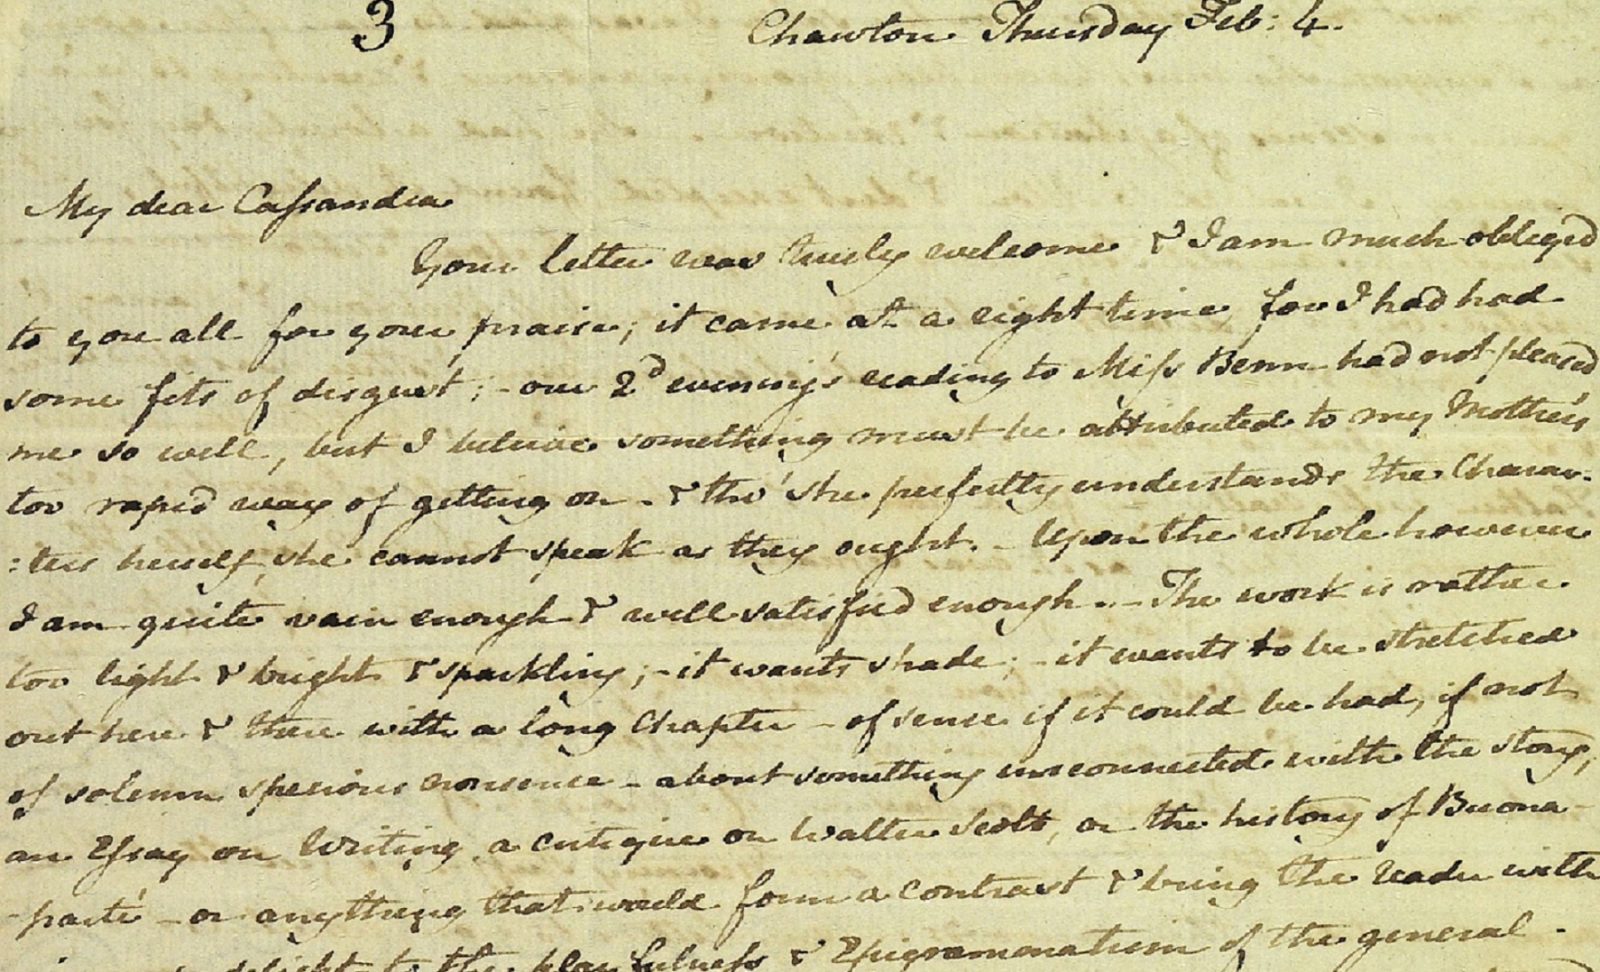 3
Chawton Thursday Feb: 4.
My dear Cassandra
Your letter was truly welcome & I am much obliged
to you all for your praise; it came at a right time, for I had had
some fits of disgust; - our 2d evening's reading to Miss Benn had not pleased
me so well, but I beleive something must be attributed to my Mother's
too rapid way of getting on - & tho' she perfectly understands the Charac-
:ters herself, she cannot speak as they ought. - Upon the whole however
I am quite vain enough & well satisfied enough. - The work is rather
too light & bright & sparkling; - it wants shade; - it wants to be stretched
out here & there with a long Chapter - of sense if it could be had, if not
of solemn specious nonsense - about something unconnected with the story;
an Essay on Writing, a critique on Walter Scott, or the history of Buona-
-parté - or anything that would form a contrast & bring the reader with
delight to the playfulness & Epigrammatism of the general